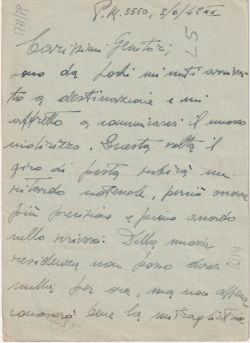 P.M. 3550, 3/6/42 XX
Carissimi Genitori,
sono da pochi minuti arriva-
to a destinazione e mi
affretto a comunicarvi il nuovo
indirizzo. Questa volta il
giro di posta subirà un
ritardo notevole, perciò
più pazienza e meno
nello scrivere. Della nuova
residenza non posso darvi
nulla per ora, ma non appena
conoscerò bene la